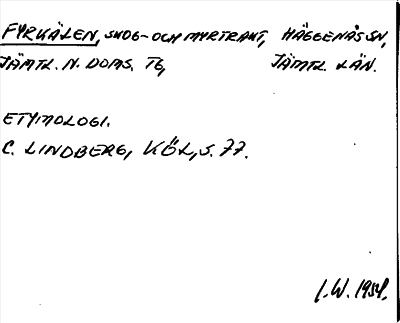 FYRKÄLEN, SKOG- OCH MYRTRAKT, HÄGGENÅS SN,
JÄMTL. N. DOMS. TG, JÄMTL. LÄN.
ETYMOLOGI.
C. LINDBERG, KÖL, S. 77.
I. W. 1954.